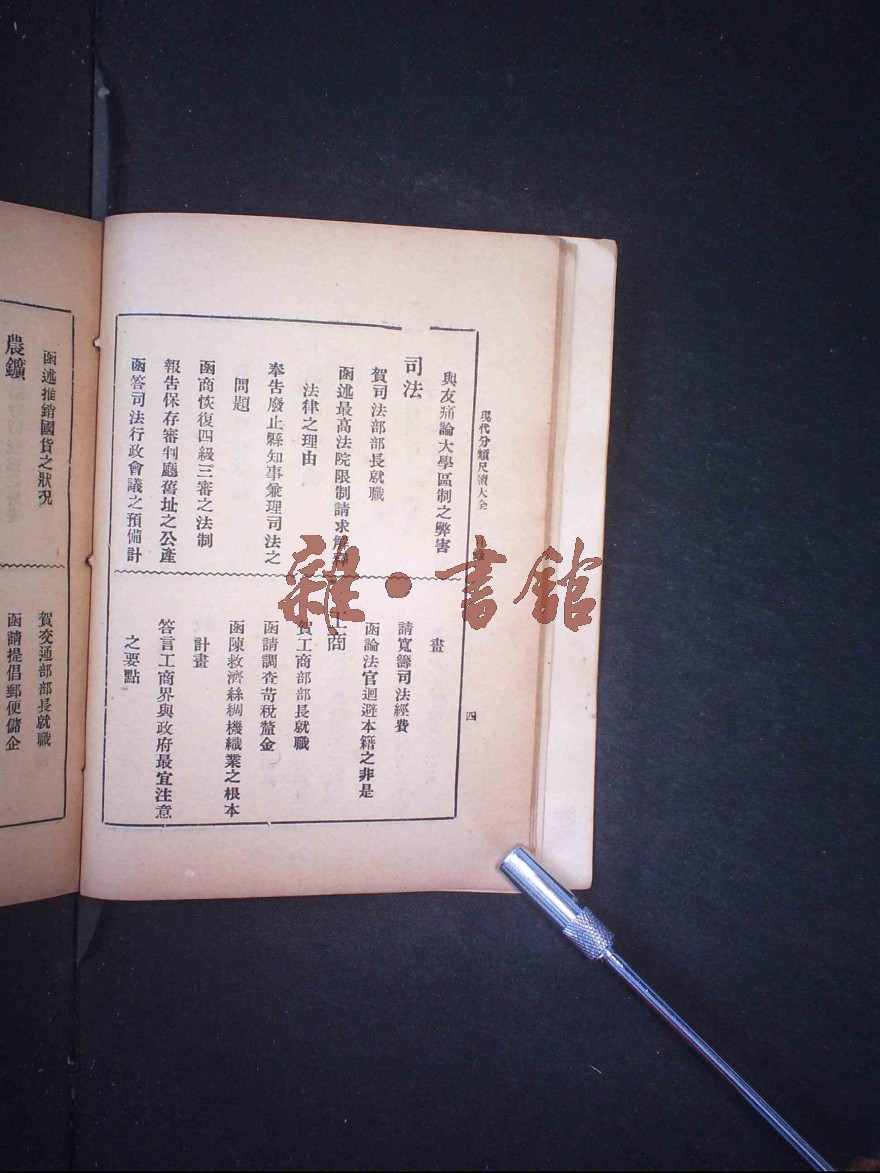 現代分類尺牘大全 目錄
四
與友痛論大學區制之弊害
司法
賀司法部部長就職
函述最高法院限制請求解釋
法律之理由
奉告廢止縣知事兼理司法之
問題
函商恢復四級三審之法制
報告保存審判廳舊址之公產
函答司法行政會議之預備計
畫
請寬籌司法經費
函論法官迴避本籍之非是
工商
賀工商部部長就職
函請調查苛稅釐金
函陳救濟絲綢機織業之根本
計畫
答言工商界與政府最宜注意
之要點
函述推銷國貨之狀況
農鑛
賀交通部部長就職
函請提倡郵便儲企
雜·書館